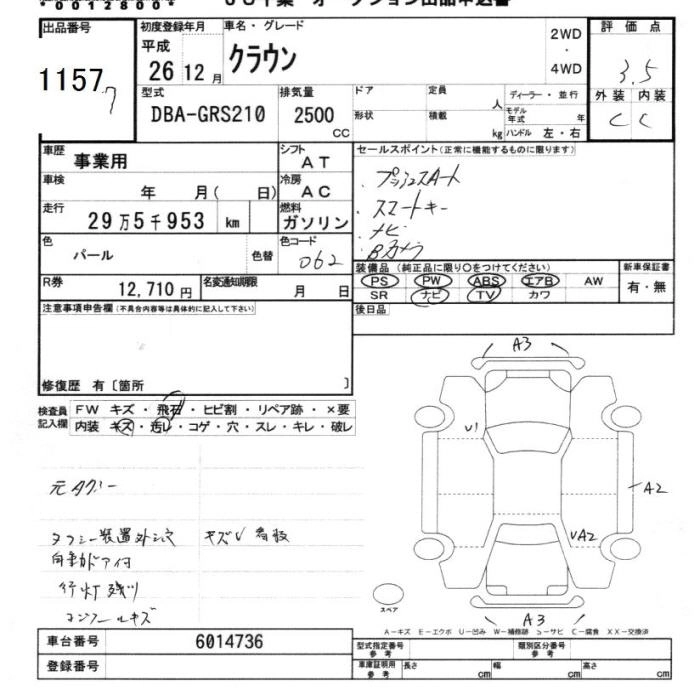 *0012800*
出品番号 初度登録年月 車名・グレード 2WD・4WD 評価点
11577 平成 26 12月 クラウン 3.5
型式 DBA-GRS210 排気量 2500 CC
ドア 定員 人 ディーラー・並行
形状 積載 kg モデル年式 年 ハンドル 左・右
外装 内装
C C
車歴 事業用 シフト AT
車検 年 月( 日) 冷房 AC
走行 29万5千953 km 燃料 ガソリン
色 パール 色替 色コード 062
R券 12,710円 名変通知期限 月 日
セールスポイント(正常に機能するものに限ります)
・プッシュスタート
・スマートキー
・ナビ
・Bカメラ
装備品 (純正品に限り〇をつけてください) 新車保証書
PS PW ABS エアB AW 有・無
SR ナビ TV カワ
後日品
注意事項申告欄(不具合内容等は具体的に記入して下さい)
修復歴 有〔箇所 〕
検査員記入欄 FW キズ・飛石・ヒビ割・リペア跡・×要
内装 キズ・汚レ・コゲ・穴・スレ・キレ・破レ
元タクシー
タクシー装置外シ穴 キズV 看板
自動ドア付
行灯残り
コンソールキズ
A3
U1
A2
UA2
A3
スペア
A-キズ E-エクボ U-凹み W-補修跡 S-サビ C-腐食 XX-交換済
車台番号 6014736
登録番号
型式指定番号 参考 類別区分番号 参考
車庫証明用 参考 長さ cm 幅 cm 高さ cm